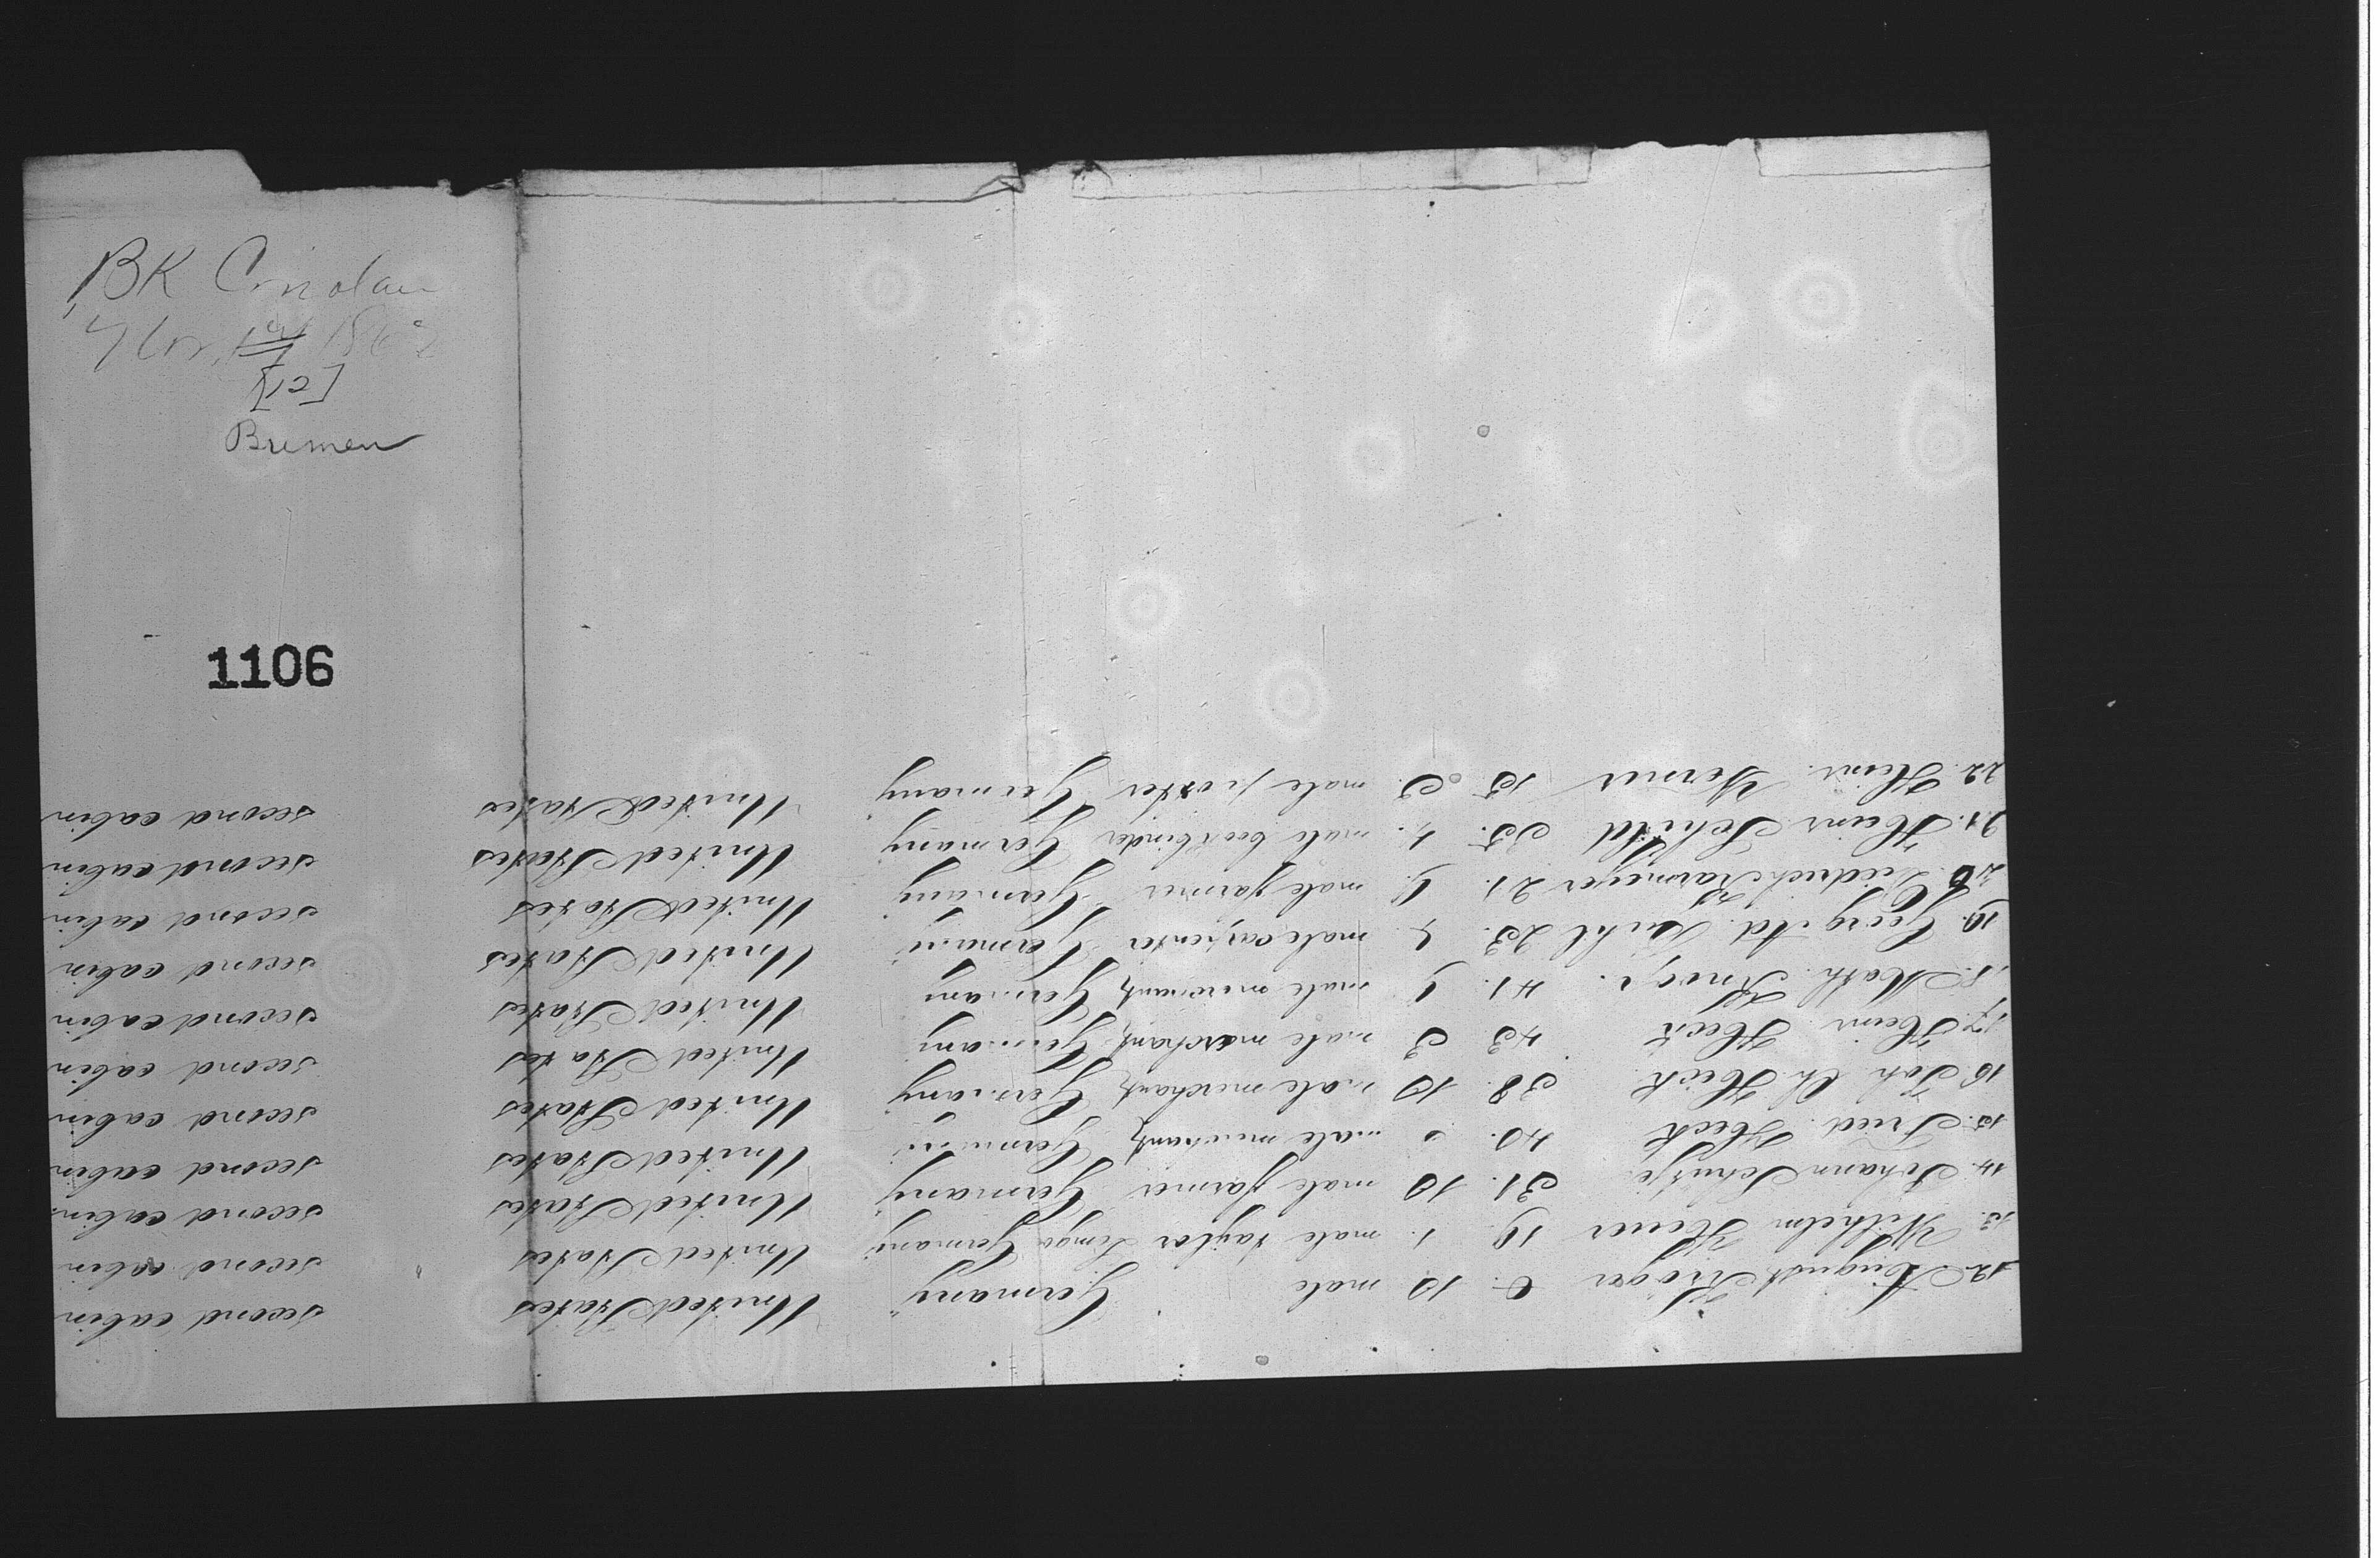 BK Coriolan
Nov. 1st 1862
[12]
Bremen
1106
12. August Kröger 6. 10 male Germany United States second cabin
13. Wilhelm 19. 1. male taylor Germany United States second cabin
14. Johann Schutje 31. 10 male farmer Germany United States second cabin
15. Fried. Heck 40. male merchant Germany United States second cabin
16. Joh. Ch. Heck 38. 10 male merchant Germany United States second cabin
17. Heinr. Heck 43 3 male marchant Germany United States second cabin
18. Math. 41. 9 male merchant Germany United States second cabin
19. Georg Ad. 23. 4 male carpenter Germany United States second cabin
20. Diedrich 21. 9. male farmer Germany United States second cabin
21. Heinr. Schild 35. 4. male bookbinder Germany United States second cabin
22. Heinr. Werner 15 3. male Germany United States second cabin